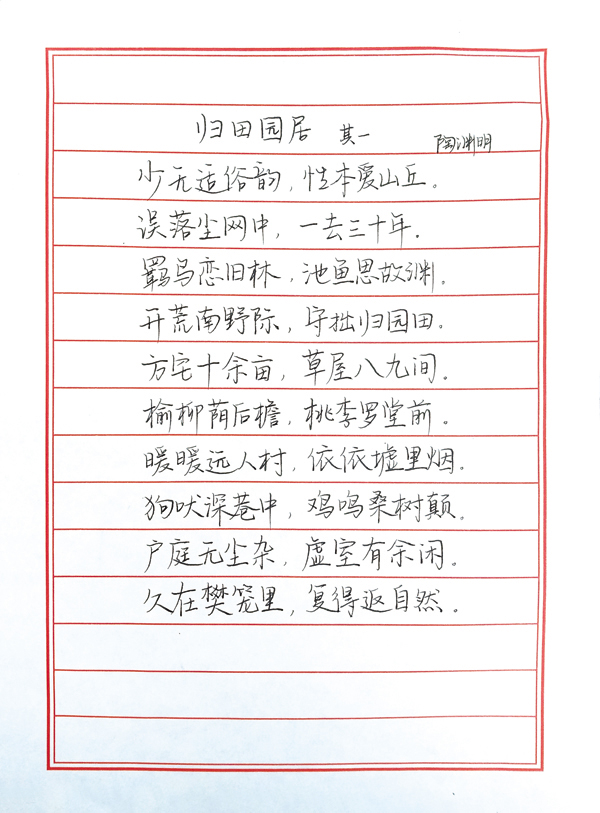 归田园居 其一 陶渊明
少无适俗韵，性本爱山丘。
误落尘网中，一去三十年.
羁鸟恋旧林，池鱼思故渊.
开荒南野际，守拙归园田.
方宅十余亩，草屋八九间.
榆柳荫后檐，桃李罗堂前。
暖暖远人村，依依墟里烟。
狗吠深巷中，鸡鸣桑树颠。
户庭无尘杂，虚室有余闲。
久在樊笼里，复得返自然。